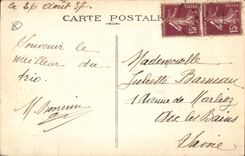 Le 26 Août 37
CARTE POSTALE
Souvenir le
meilleur du
trio.
Mademoiselle
Juliette
1 Avenue de Marlioz
Aix les Bains
Savoie